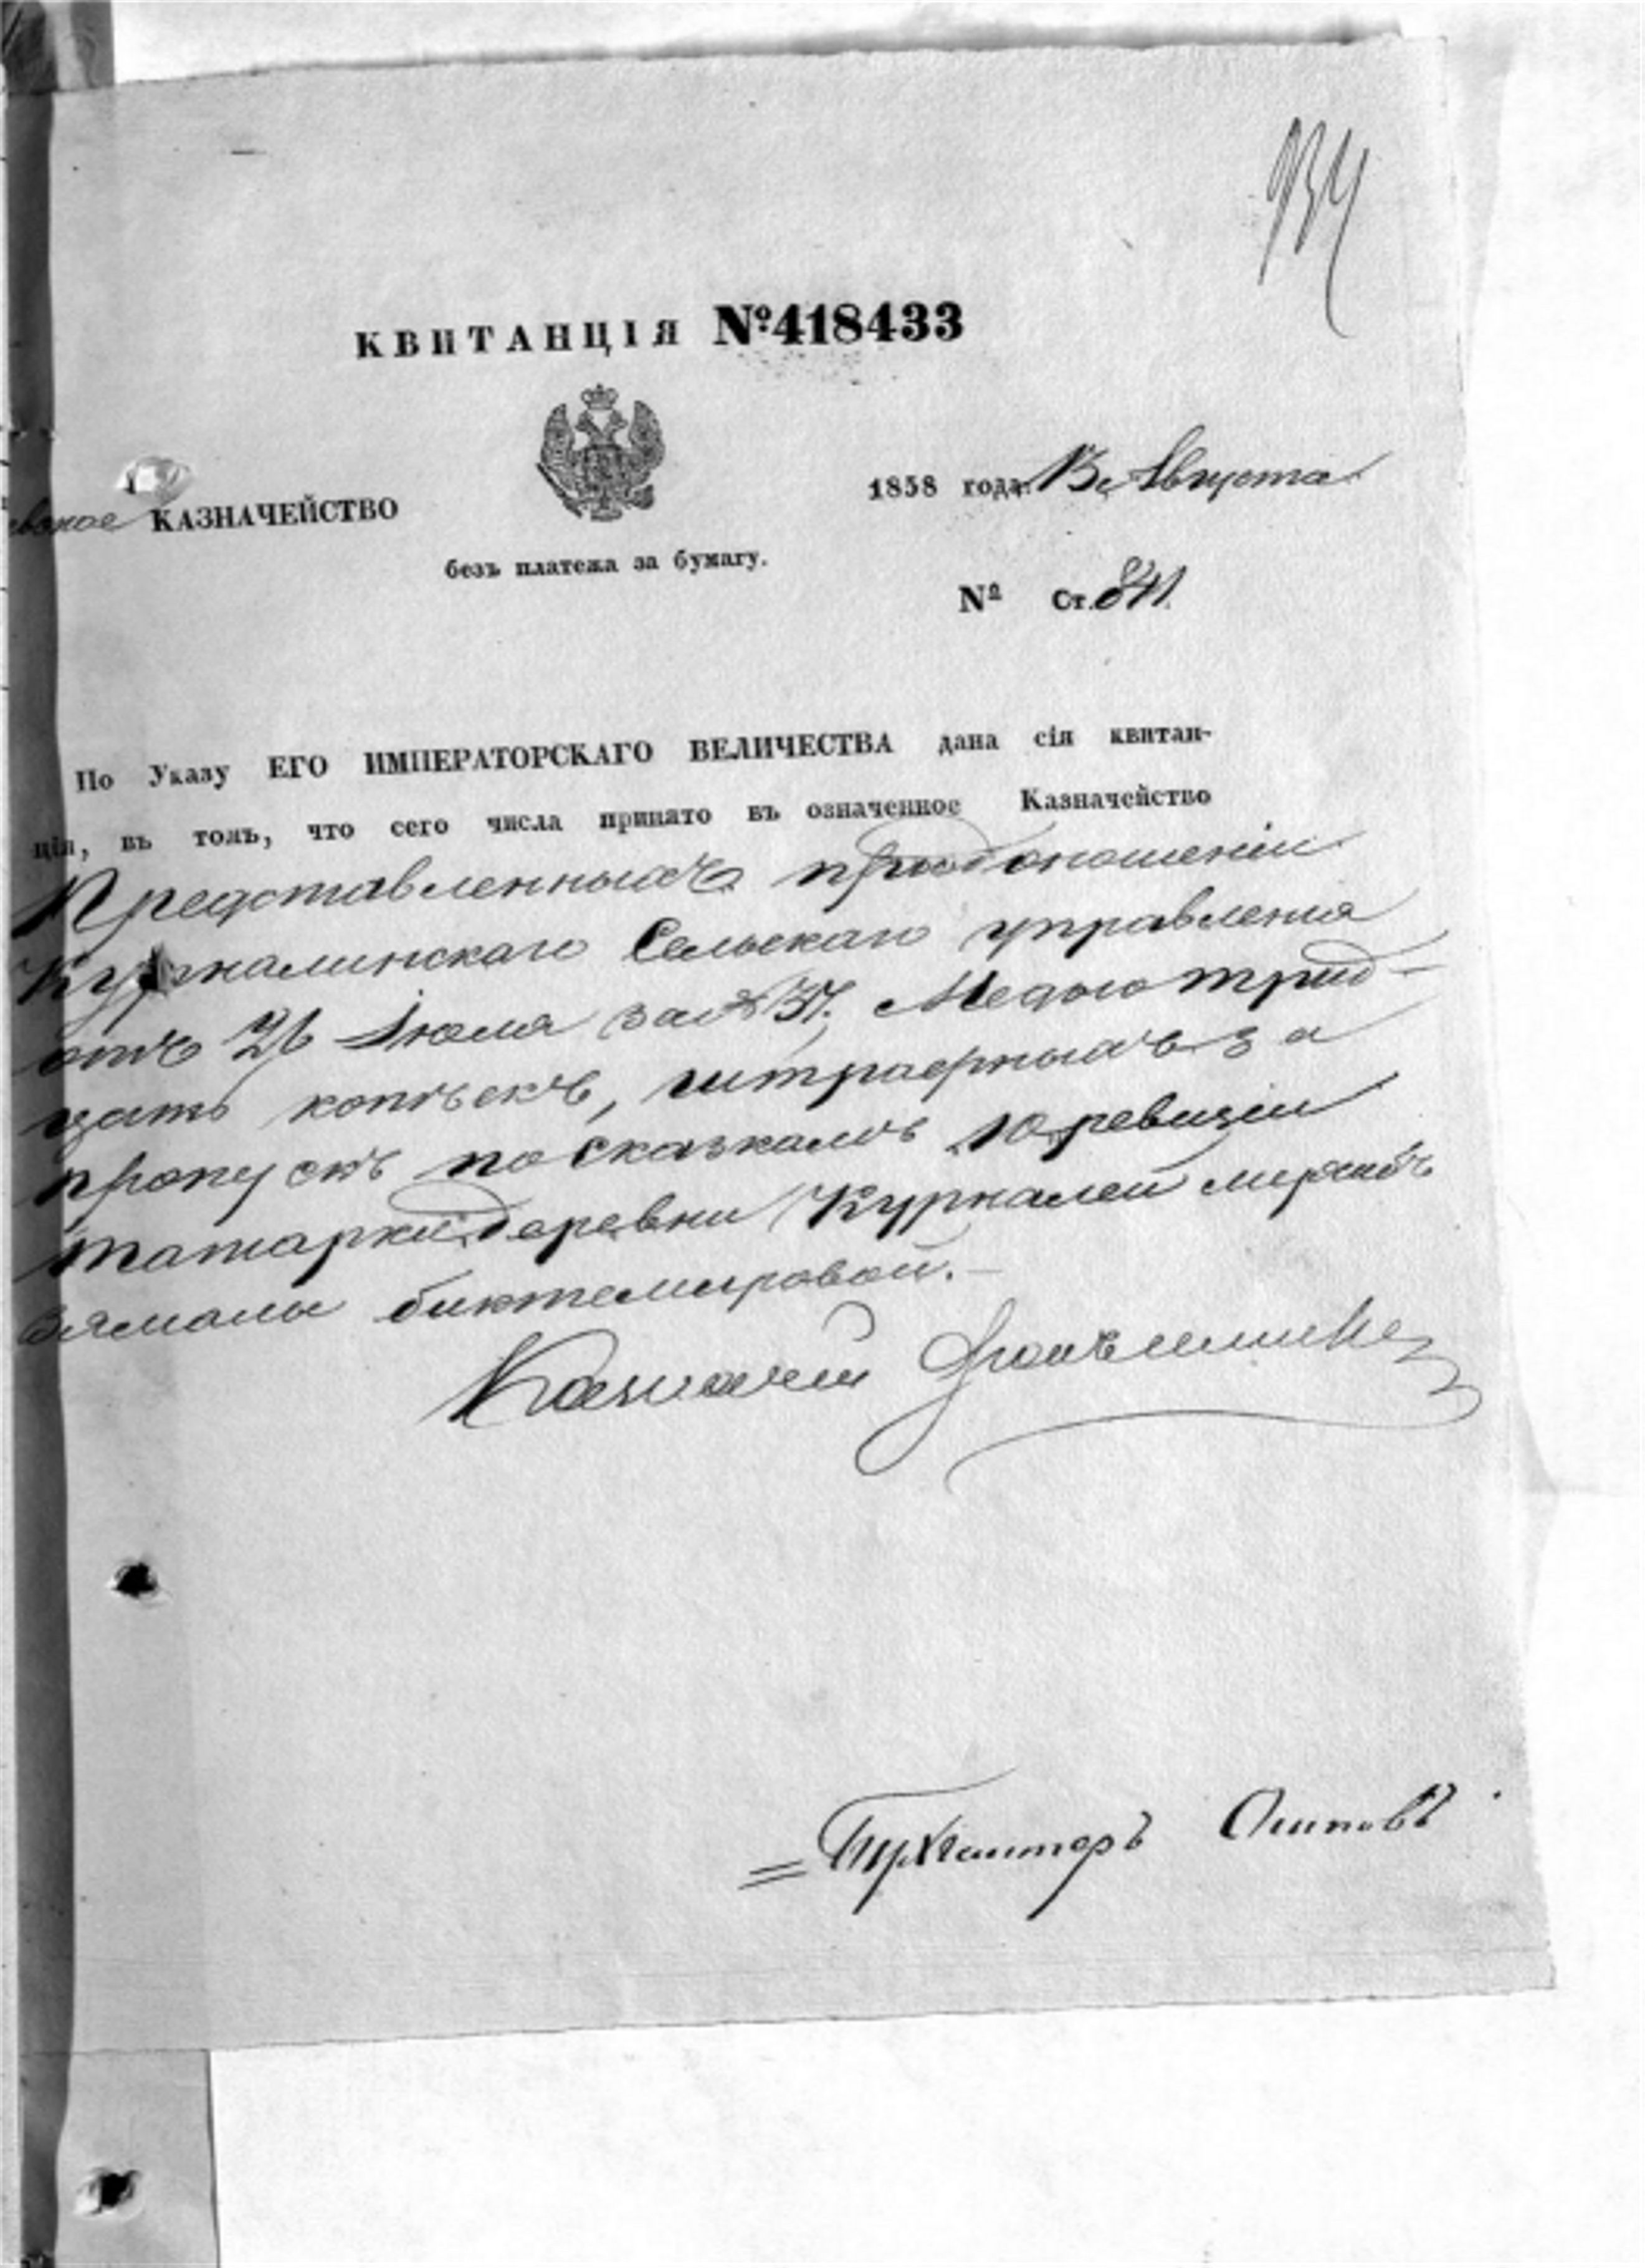 934
КВИТАНЦІЯ №418433
КАЗНАЧЕЙСТВО
1858 года. 13 Августа
безъ платежа за бумагу.
№ Ст. 841.
По Указу ЕГО ИМПЕРАТОРСКАГО ВЕЛИЧЕСТВА дана сія квитан-
ція, въ томъ, что сего числа принято въ означенное Казначейство
Представленныхъ при доношеніи
Куркалинскаго Сельскаго управления
отъ 26 Іюля за № 37. Медью трид-
цать копѣекъ, штрафныхъ за
пропускъ по сказкамъ 10 ревизіи
татарки деревни Куркалей
Бяктемировой.
Казначей
Бухгалтеръ Осиповъ